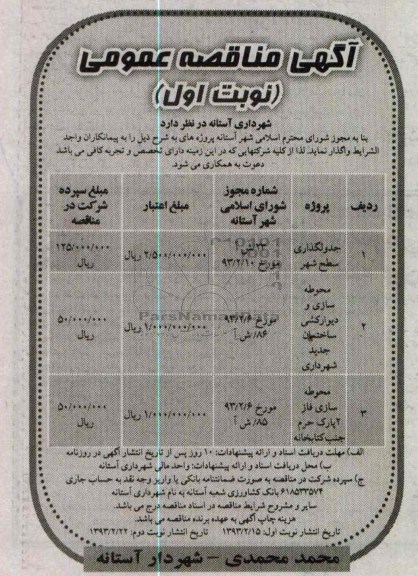 آگهی مناقصه عمومی
(نوبت اول)
شهرداری آستانه در نظر دارد
بنا به مجوز شورای محترم اسلامی شهر آستانه پروژه های به شرح ذیل را به پیمانکاران واجد
الشرایط واگذار نماید. لذا از کلیه شرکتهایی که در این زمینه دارای تخصص و تجربه کافی می باشد
دعوت به همکاری می شود.
ردیف پروژه شماره مجوز شورای اسلامی شهر آستانه مبلغ اعتبار مبلغ سپرده شرکت در مناقصه
۱ جدولگذاری سطح شهر مورخ ۹۳/۲/۱۰ ۲/۵۰۰/۰۰۰/۰۰۰ ریال ۱۲۵/۰۰۰/۰۰۰ ریال
۲ محوطه سازی و دیوارکشی ساختمان جدید شهرداری مورخ ۹۳/۲/۶ ۸۶/ش آ ۱/۰۰۰/۰۰۰/۰۰۰ ریال ۵۰/۰۰۰/۰۰۰ ریال
۳ محوطه سازی فاز ۲پارک حرم جنب کتابخانه مورخ ۹۳/۲/۶ ۸۵/ش آ ۱/۰۰۰/۰۰۰/۰۰۰ ریال ۵۰/۰۰۰/۰۰۰ ریال
ParsNamadData
الف) مهلت دریافت اسناد و ارائه پیشنهادات: ۱۰ روز پس از تاریخ انتشار آگهی در روزنامه
ب) محل دریافت اسناد و ارائه پیشنهادات: واحد مالی شهرداری آستانه
ج) سپرده شرکت در مناقصه به صورت ضمانتنامه بانکی یا واریز وجه نقد به حساب جاری
۶۱۸۵۳۳۵۷۴ بانک کشاورزی شعبه آستانه به نام شهرداری آستانه
سایر و مشروح شرایط مناقصه در اسناد مناقصه درج می باشد.
هزینه چاپ آگهی به عهده برنده مناقصه می باشد.
تاریخ انتشار نوبت اول: ۱۳۹۳/۲/۱۵ تاریخ انتشار نوبت دوم: ۱۳۹۳/۲/۲۲
محمد محمدی - شهردار آستانه